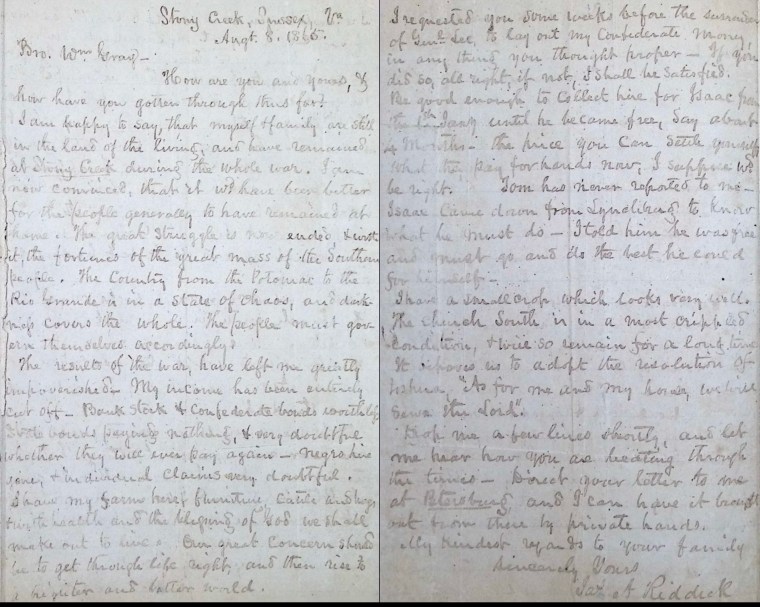 Stony Creek, Sussex, Va
Augt. 8. 1865.
Bro. Wm Gray—
How are you and yours, &
how have you gotten through thus far?
I am happy to say, that myself & family are still
in the land of the living, and have remained
at Stony Creek during the whole war. I am
now convinced, that it wd have been better
for the people generally to have remained at
home. The great struggle is now ended, & with
it, the fortunes of the great mass of the Southern
people. The Country from the Potomac to the
Rio Grande is in a state of chaos, and dark-
ness covers the whole. The people must gov-
ern themselves accordingly.
The results of the war, have left me greatly
impoverished— My income has been entirely
cut off— Bank Stock & Confederate bonds worthless
State bonds paying nothing, & very doubtful
whether they will ever pay again— negro hire
gone, & individual claims very doubtful.
I have my farm here, furniture, cattle and hogs,
& with health and the blessing of God we shall
make out to live. Our great concern should
be to get through life right, and then rise to
a brighter and better world.
I requested you some weeks before the surrender
of Genl. Lee, to lay out my Confederate money,
in any thing you thought proper— If you
did so, all right, if not, I shall be satisfied.
Be good enough to collect hire for Isaac from
the Jany until he became free, say about
4 Months— the price you can settle yourself
What the pay for hands now, I suppose wd
be right. Tom has never reported to me—
Isaac came down from Lynchburg to know
what he must do— I told him he was free
and must go and do the best he could
for himself—
I have a small crop which looks very well.
The church South is in a most crippled
condition, & will so remain for a long time
It behooves us to adopt the resolution of
Joshua, "As for me and my house, we will
serve the Lord".
Drop me a few lines shortly, and let
me hear how you are beating through
the times— Direct your letter to me
at Petersburg, and I can have it brought
out from there by private hands.
My kindest regards to your family
Sincerely Yours
Jas A Riddick